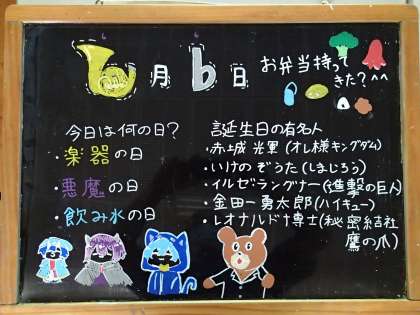 6月6日
お弁当持って
きた?^^
今日は何の日?
・楽器の日
・悪魔の日
・飲み水の日
誕生日の有名人
・赤城光軍(オレ様キングダム)
・いけのぞうた(しまじろう)
・イルゼ・ラングナー(進撃の巨人)
・金田一勇太郎(ハイキュー)
・レオナルド博士(秘密結社
鷹の爪)